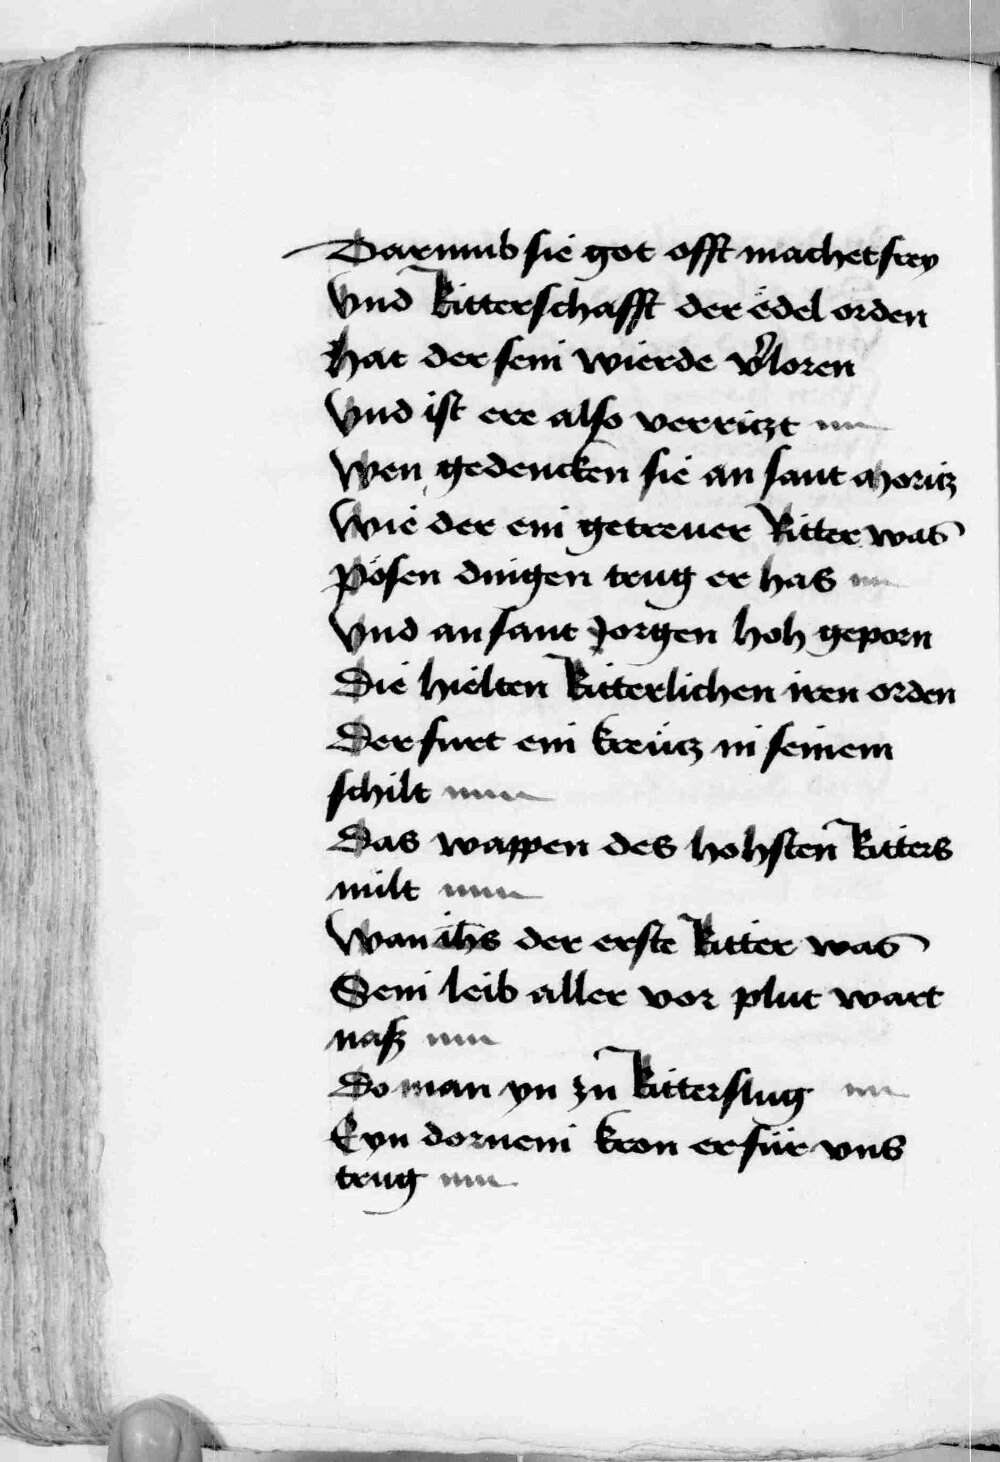 Darumb sie got offt machet frey
Vnd Ritterschafft der edel orden
Hat der sein wierde v̉loren
Vnd ist ere also verriczt
Wen gedencken sie an sant Moricz
Wie der ein getreuer Ritter was
Pösen dingen trug er has
Vnd an sant Jorgen hoh geporn
Die hielten Ritterlichen iren orden
Der furt ein kreücz in seinem
schilt
Das wappen des hohsten Ritters
milt
Wan ih̄s der erste Ritter was
Sein leib aller vor plut wart
naß
Do man yn zu Ritter slug
Eyn dornein kron er für vns
trug